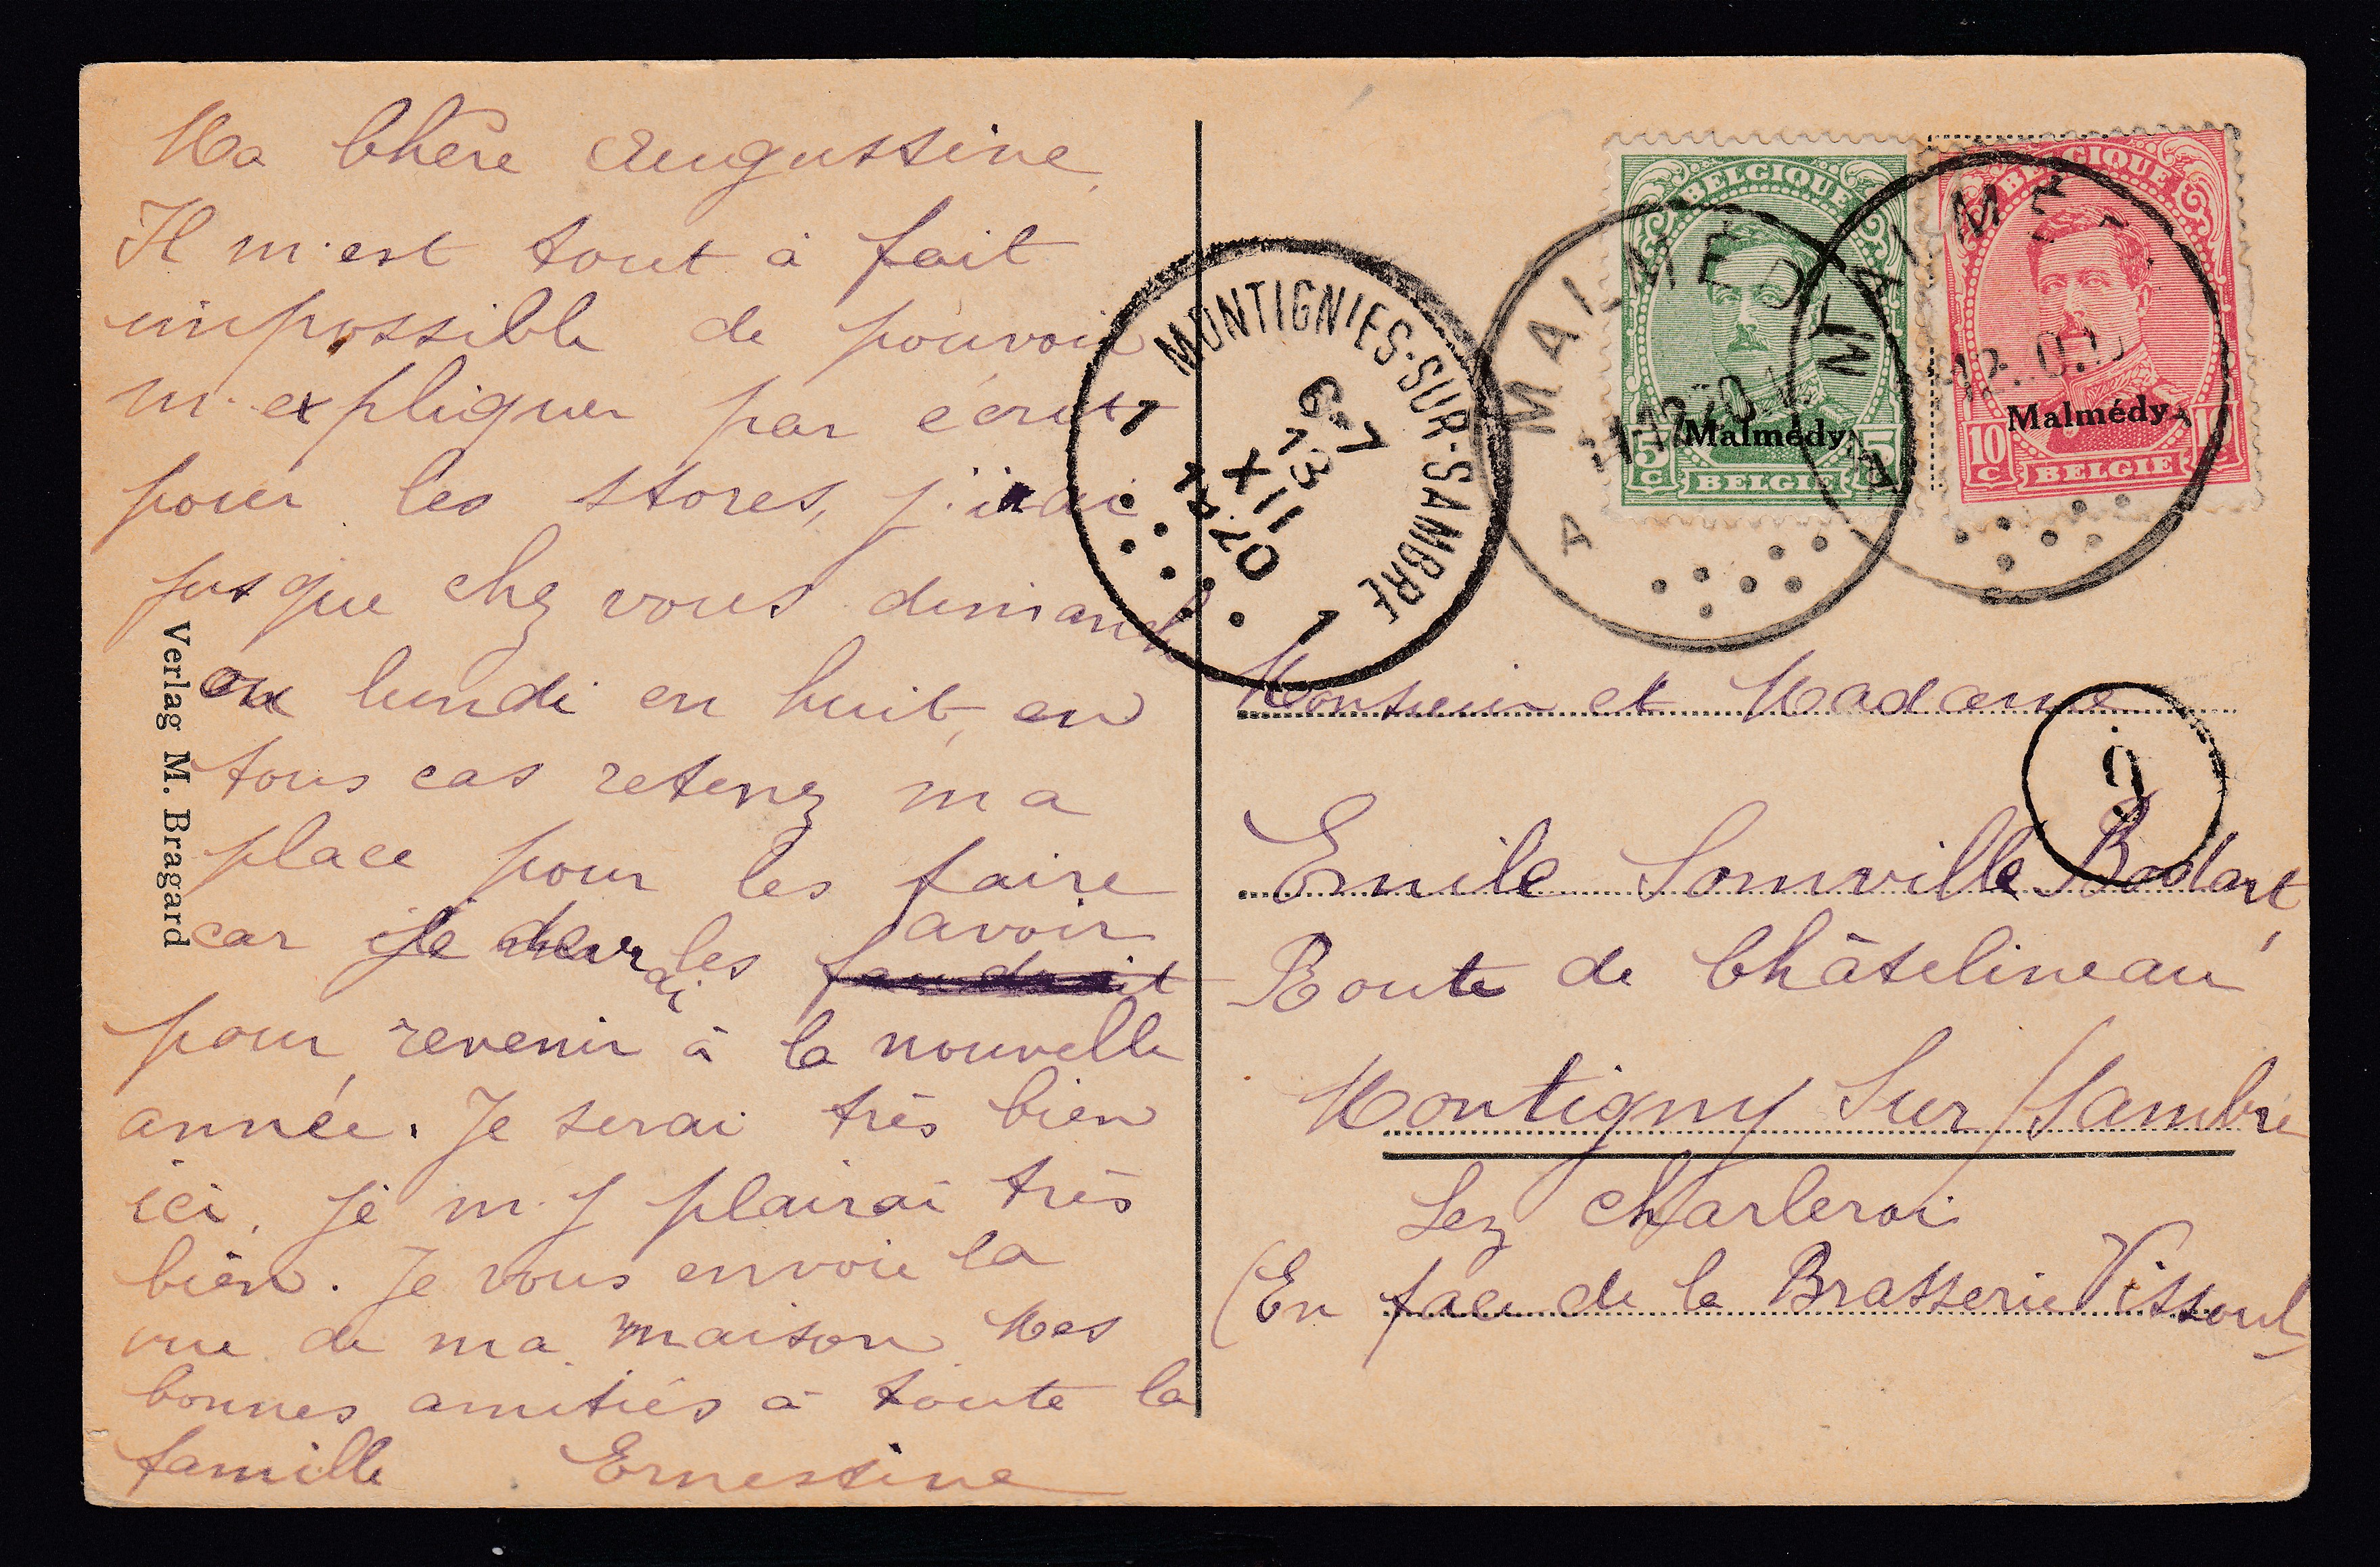 Ma Chère Augustine,
Il m'est tout à fait
impossible de pouvoir
m'expliquer par écrit
pour les stores, j'irai
jusque chez vous dimanche
ou lundi en huit, en
tous cas retenez ma
place pour les faire
car je devrai les avoir
pour revenir à la nouvelle
année. Je serai très bien
ici, je m'y plairai très
bien. Je vous envoie la
vue de ma maison. Mes
bonnes amitiés à toute la
famille Ernestine
Verlag M. Bragard
MONTIGNIES-SUR-SAMBRE
6-7
13
XII
1920
1 1
BELGIQUE
Malmédy
5c 5c
BELGIE
BELGIQUE
Malmédy
10c 10c
BELGIE
MALMEDY
MALMEDY
Monsieur et Madame
Emile Somville Bodart,
Route de Châtelineau
Montigny Sur Sambre
Lez Charleroi
(En face de la Brasserie Vissoul)